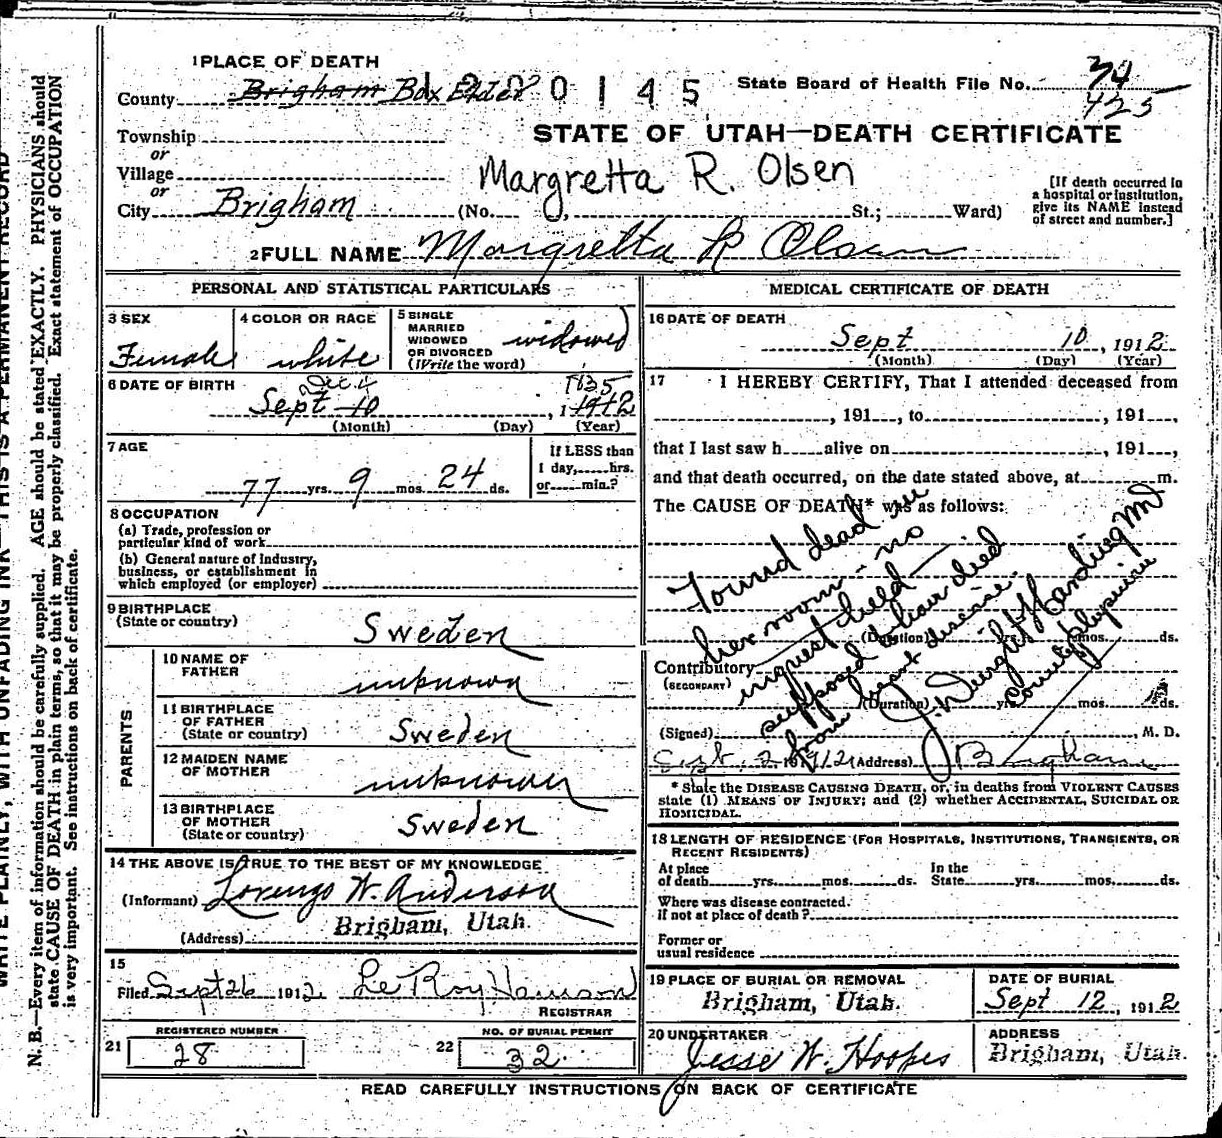 WRITE PLAINLY, WITH UNFADING INK—THIS IS A PERMANENT RECORD
N. B.—Every item of information should be carefully supplied. AGE should be stated EXACTLY. PHYSICIANS should
state CAUSE OF DEATH in plain terms, so that it may be properly classified. Exact statement of OCCUPATION
is very important. See instructions on back of certificate.
1 PLACE OF DEATH
County Brigham Box Elder 0145
State Board of Health File No. 74
425
Township
or
Village
or
City Brigham
STATE OF UTAH—DEATH CERTIFICATE
Margretta R. Olsen
(No. St.; Ward)
[If death occurred in
a hospital or institution,
give its NAME instead
of street and number.]
2 FULL NAME Margretta R Olsen
PERSONAL AND STATISTICAL PARTICULARS
3 SEX
Female
4 COLOR OR RACE
white
5 SINGLE
MARRIED
WIDOWED
OR DIVORCED
(Write the word)
widowed
6 DATE OF BIRTH
Dec 4
Sept 10, 1912
(Month) (Day) (Year)
7 AGE
77 yrs. 9 mos. 24 ds.
If LESS than
1 day, hrs.
or min.?
8 OCCUPATION
(a) Trade, profession or
particular kind of work
(b) General nature of industry,
business, or establishment in
which employed (or employer)
9 BIRTHPLACE
(State or country)
Sweden
PARENTS
10 NAME OF
FATHER
unknown
11 BIRTHPLACE
OF FATHER
(State or country)
Sweden
12 MAIDEN NAME
OF MOTHER
unknown
13 BIRTHPLACE
OF MOTHER
(State or country)
Sweden
14 THE ABOVE IS TRUE TO THE BEST OF MY KNOWLEDGE
(Informant) Lorenzo W. Anderson
(Address) Brigham, Utah.
15
Filed Sept 26 1912 Le Roy
REGISTRAR
21 REGISTERED NUMBER
28
22 NO. OF BURIAL PERMIT
32
MEDICAL CERTIFICATE OF DEATH
16 DATE OF DEATH
Sept 10, 1912
(Month) (Day) (Year)
17 I HEREBY CERTIFY, That I attended deceased from
, 191 , to , 191 ,
that I last saw h alive on , 191 ,
and that death occurred, on the date stated above, at m.
The CAUSE OF DEATH* was as follows:
Found dead in
her room - no
inquest held —
supposed to have died
from heart disease.
J. Dwight Harding MD
County Physician
(Duration) yrs. mos. ds.
Contributory
(SECONDARY)
(Duration) yrs. mos. ds.
(Signed) , M. D.
Sept. 1912 (Address) Brigham
* State the DISEASE CAUSING DEATH, or, in deaths from VIOLENT CAUSES
state (1) MEANS OF INJURY; and (2) whether ACCIDENTAL, SUICIDAL OR
HOMICIDAL.
18 LENGTH OF RESIDENCE (FOR HOSPITALS, INSTITUTIONS, TRANSIENTS, OR
RECENT RESIDENTS)
At place
of death yrs. mos. ds.
In the
State yrs. mos. ds.
Where was disease contracted.
if not at place of death?
Former or
usual residence
19 PLACE OF BURIAL OR REMOVAL
Brigham, Utah.
DATE OF BURIAL
Sept 12, 1912
20 UNDERTAKER
Jesse W. Hoopes
ADDRESS
Brigham, Utah.
READ CAREFULLY INSTRUCTIONS ON BACK OF CERTIFICATE